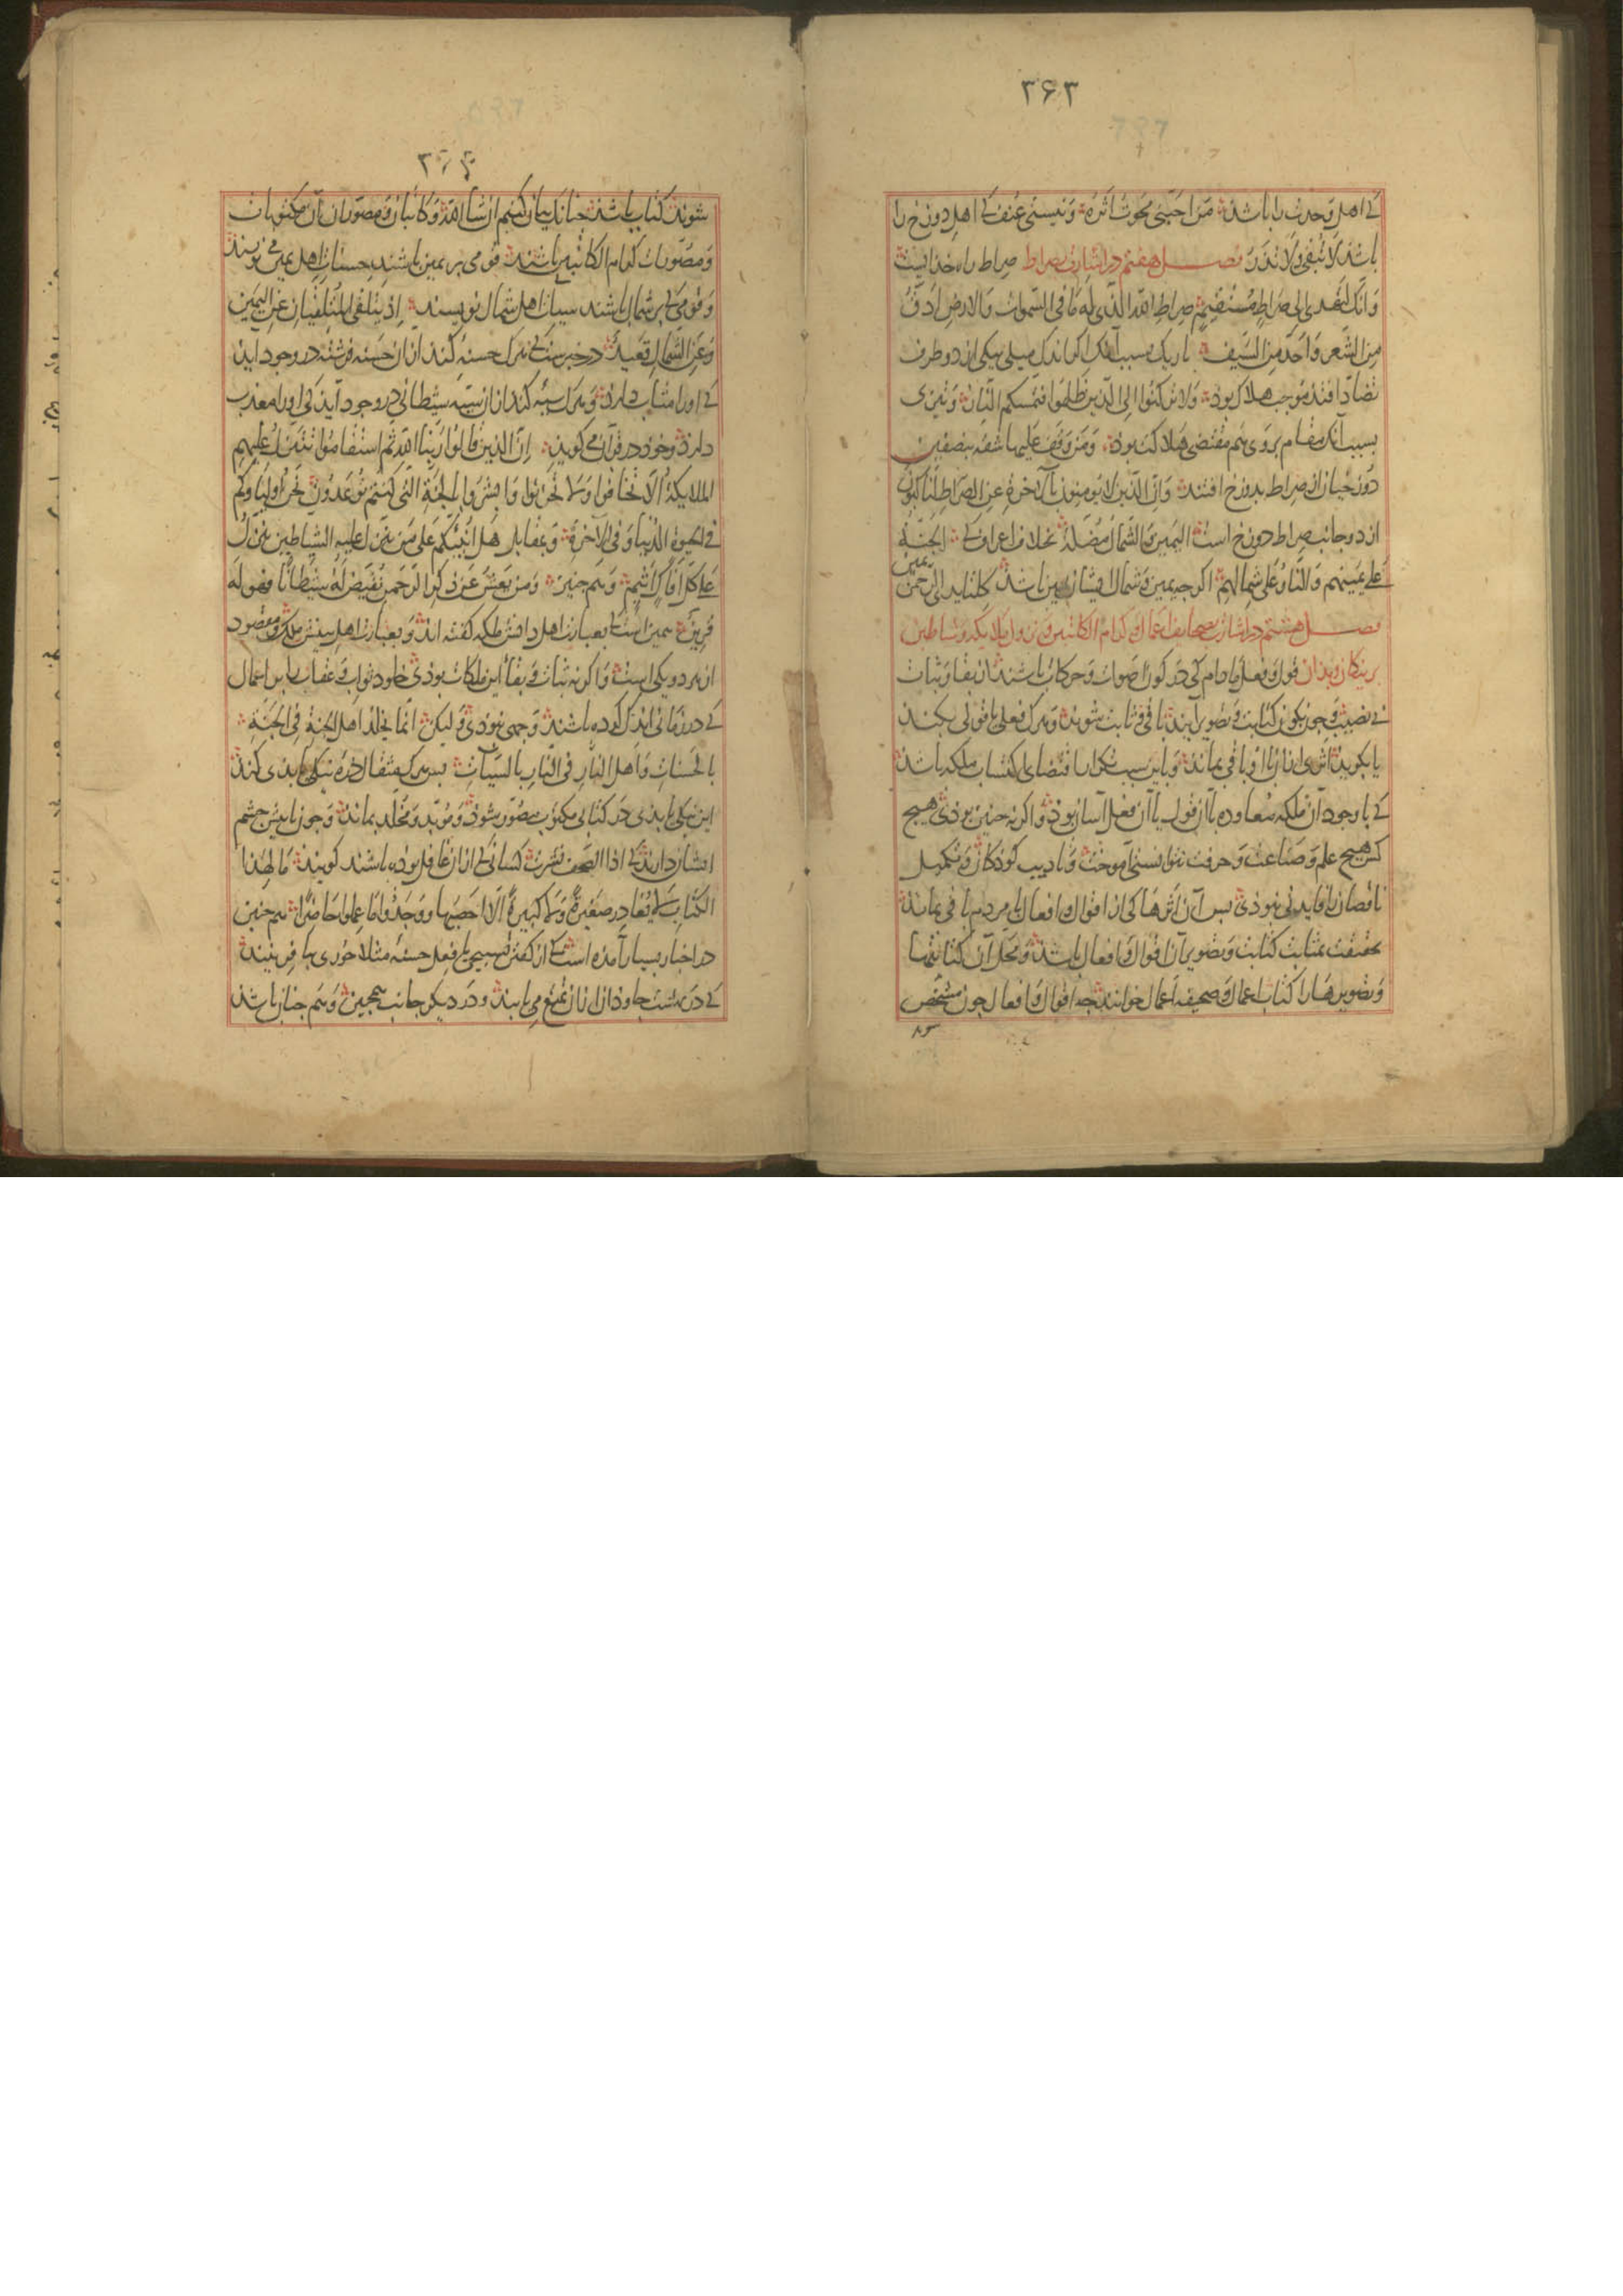 ۳۶۳
کی اهل وحدت را باشد من احبنی محوت اثره و نیستی عنف کی اهل دوزخ را
باشد لا تبقی و لا تذر فصل هفتم در اشارت بصراط صراط راه خدایست
و انک لتهدی الی صراط مستقیم صراط الله الذی له ما فی السموات و الارض ادق
من الشعر و احد من السیف باریک بسبب آنک اگر اندک میلی بیکی از دو طرف
تضاد افتد موجب هلاک بود و لا ترکنوا الی الذین ظلموا فتمسکم النار و تیزی
بسبب آنک مقام بروی هم مقتضی هلاکت بود و من وقف علیها شقه بنصفین
دوزخیان از صراط بدوزخ افتند و ان الذین لا یومنون بالآخرة عن الصراط لناکبون
از دو جانب صراط دوزخ است الیمین و الشمال مضلة بخلاف اعراف کی الجنة
علی یمینهم و النار علی شمالهم اگر چه یمین و شمال ایشان یمین باشد کلتا ید الرحمن یمین
فصل هشتم در اشارت بصحایف اعمال و کرام الکاتبین و نزول ملایکه و شیاطین
بر نیکان و بدان قول و فعل مادام کی در کون اصوات و حرکات باشند از بقا و ثبات
بی نصیب و چون بکون کتابت و تصویر آیند باقی و ثابت شوند و هرک فعلی یا قولی بکند
یا بگوید اثری از آن با او باقی بماند و باین سبب تکرار اقتضای اکتساب ملکه باشد
کی با وجود آن ملکه معاوده با آن قول یا آن فعل آسان بود و اگر نه چنین بودی هیچ
کس هیچ علم و صناعت و حرفت نتوانستی آموخت و تادیب کودکان و تکمیل
ناقصان را فایده‌ نبودی پس آن اثرها کی از اقوال و افعال با مردم باقی بماند
بحقیقت بمثابت کتابت و تصویر آن اقوال و افعال باشد و محل آن کتابتها
و تصویرها را کتاب اعمال و صحیفه اعمال خوانند چه اقوال و افعال چون مشخص
شوند کتاب باشد چنانک بیان کنیم ان شا الله و کاتبان و مصوران آن مکتوبات
و مصورات کرام الکاتبین باشند قومی بر یمین باشند حسنات اهل یمین می نویسند
و قومی کی بر شمال باشند سیات اهل شمال نویسند اذ یتلقی المتلقیان عن الیمین
و عن الشمال قعید در خبرست کی هرک حسنه کند از ان حسنه فرشته در وجود آید
کی او را مثاب دارد و هرک سیئه کند از ان سیئه شیطانی در وجود آید کی او را معذب
دارد و خود در قرآن می گوید ان الذین قالوا ربنا الله ثم استقاموا تتنزل علیهم
الملایکة الا تخافوا و لا تحزنوا و ابشروا بالجنة التی کنتم توعدون نحن اولیاوکم
فی الحیوة الدنیا و فی الآخرة و بمقابل هل انبئکم علی من تنزل علیه الشیاطین تنزل
علی کل افاک اثیم و هم چنین و من یعش عن ذکر الرحمن نقیض له شیطانا فهو له
قرین همین است کی بعبارت اهل دانش ملکه گفته اند و بعبارت اهل بینش ملک و مقصود
از هر دو یکی است و اگر نه ثبات و بقا این ملکات بودی خلود ثواب و عقاب را بر اعمال
کی در زمانی اندک کرده باشند وجهی نبودی و لیکن انما یخلد اهل الجنة فی الجنة
بالحسنات و اهل النار فی النار بالسیآت پس هرک مثقال ذره نیکی یا بدی کند
این نیکی یا بدی در کتابی مکتوب و مصور شود و موبد و مخلد بماند و چون با پیش چشم
ایشان دارند کی اذا الصحف نشرت کسانی کی از ان غافل بوده باشند گویند مالهذا
الکتاب لا یغادر صغیرة و لا کبیرة الا احصیها و وجدوا ما عملوا حاضرا هم چنین
در اخبار بسیار آمده است کی از گفتن تسبیحی یا فعل حسنه مثلا حوری بیافرینند
کی در بهشت جاودان از ان تمتع می یابند و در دیگر جانب همچنین و هم چنان باشد